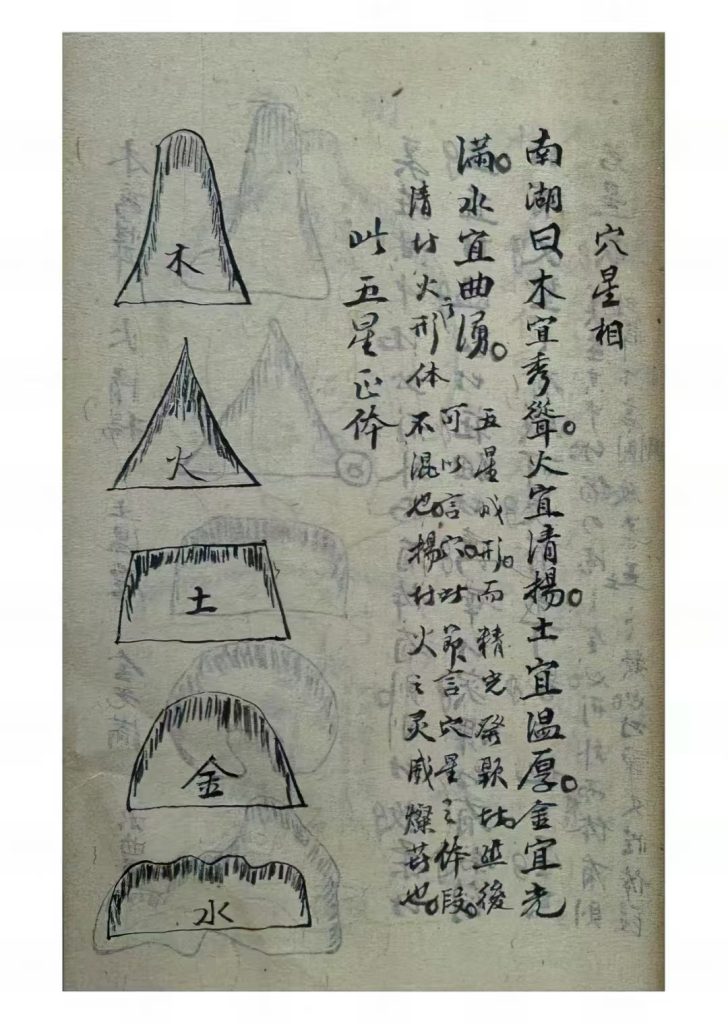 穴星相
南湖曰木宜秀聳。火宜清揚。土宜温厚。金宜光
滿。水宜曲湧。
五星成形。而精光發顯者。然後
可以言穴。此節言穴星之体段。
清者火之形体不混也。揚者火之灵威燦著也。
此五星正体
木
火
土
金
水